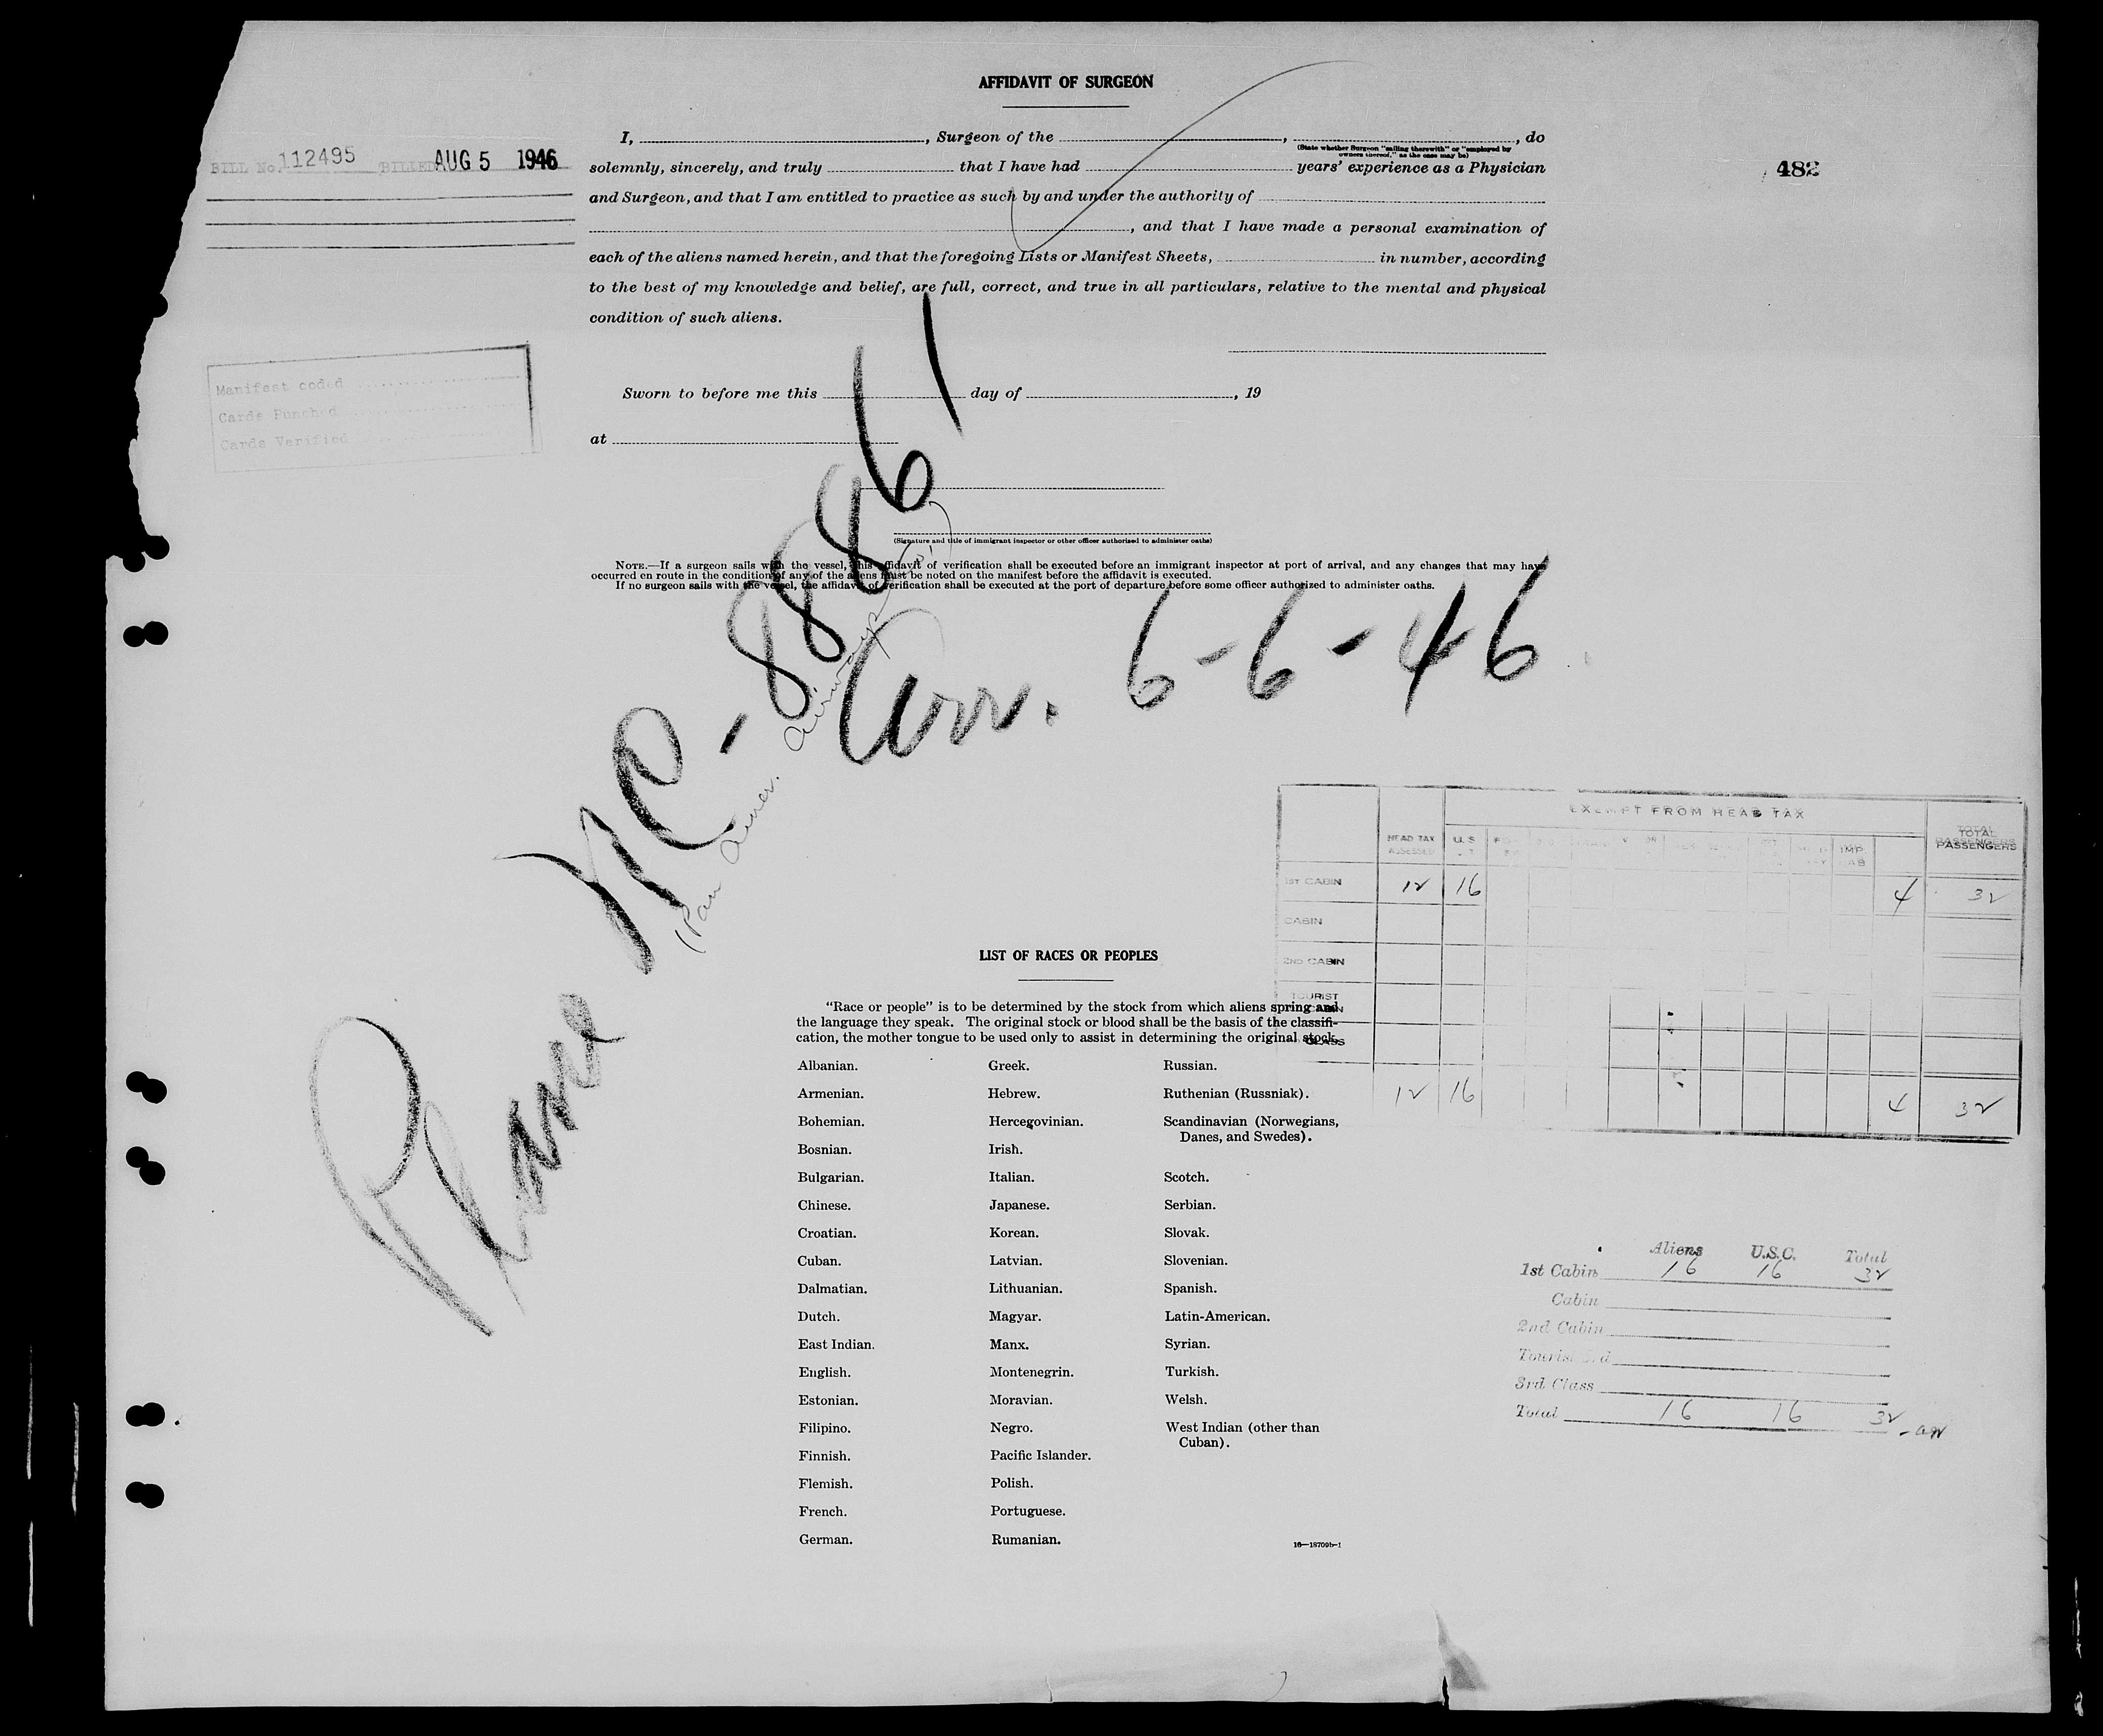 AFFIDAVIT OF SURGEON
I, , Surgeon of the , , do
(State whether Surgeon "sailing therewith" or "employed by
owners thereof," as the case may be)
solemnly, sincerely, and truly that I have had years' experience as a Physician
and Surgeon, and that I am entitled to practice as such by and under the authority of
, and that I have made a personal examination of
each of the aliens named herein, and that the foregoing Lists or Manifest Sheets, in number, according
to the best of my knowledge and belief, are full, correct, and true in all particulars, relative to the mental and physical
condition of such aliens.
BILL No. 112495 BILLED AUG 5 1946
482
Manifest coded
Cards Punched
Cards Verified
Sworn to before me this day of , 19
at
(Signature and title of immigrant inspector or other officer authorized to administer oaths)
NOTE.—If a surgeon sails with the vessel, this affidavit of verification shall be executed before an immigrant inspector at port of arrival, and any changes that may have
occurred en route in the condition of any of the aliens must be noted on the manifest before the affidavit is executed.
If no surgeon sails with the vessel, the affidavit of verification shall be executed at the port of departure before some officer authorized to administer oaths.
Plane NC-88861
(Pan Amer. Airways)
Arr. 6-6-46
EXEMPT FROM HEAD TAX
HEAD TAX ASSESSED
U.S.
IMP
TOTAL PASSENGERS
1ST CABIN 12 16 4 32
CABIN
2ND CABIN
TOURIST
CLASS
12 16 4 32
LIST OF RACES OR PEOPLES
"Race or people" is to be determined by the stock from which aliens spring and
the language they speak. The original stock or blood shall be the basis of the classifi-
cation, the mother tongue to be used only to assist in determining the original stock.
Albanian.
Armenian.
Bohemian.
Bosnian.
Bulgarian.
Chinese.
Croatian.
Cuban.
Dalmatian.
Dutch.
East Indian.
English.
Estonian.
Filipino.
Finnish.
Flemish.
French.
German.
Greek.
Hebrew.
Hercegovinian.
Irish.
Italian.
Japanese.
Korean.
Latvian.
Lithuanian.
Magyar.
Manx.
Montenegrin.
Moravian.
Negro.
Pacific Islander.
Polish.
Portuguese.
Rumanian.
Russian.
Ruthenian (Russniak).
Scandinavian (Norwegians,
Danes, and Swedes).
Scotch.
Serbian.
Slovak.
Slovenian.
Spanish.
Latin-American.
Syrian.
Turkish.
Welsh.
West Indian (other than
Cuban).
16—18709b-1
Aliens U.S.C. Total
1st Cabin 16 16 32
Cabin
2nd Cabin
Tourist 3rd
3rd Class
Total 16 16 32